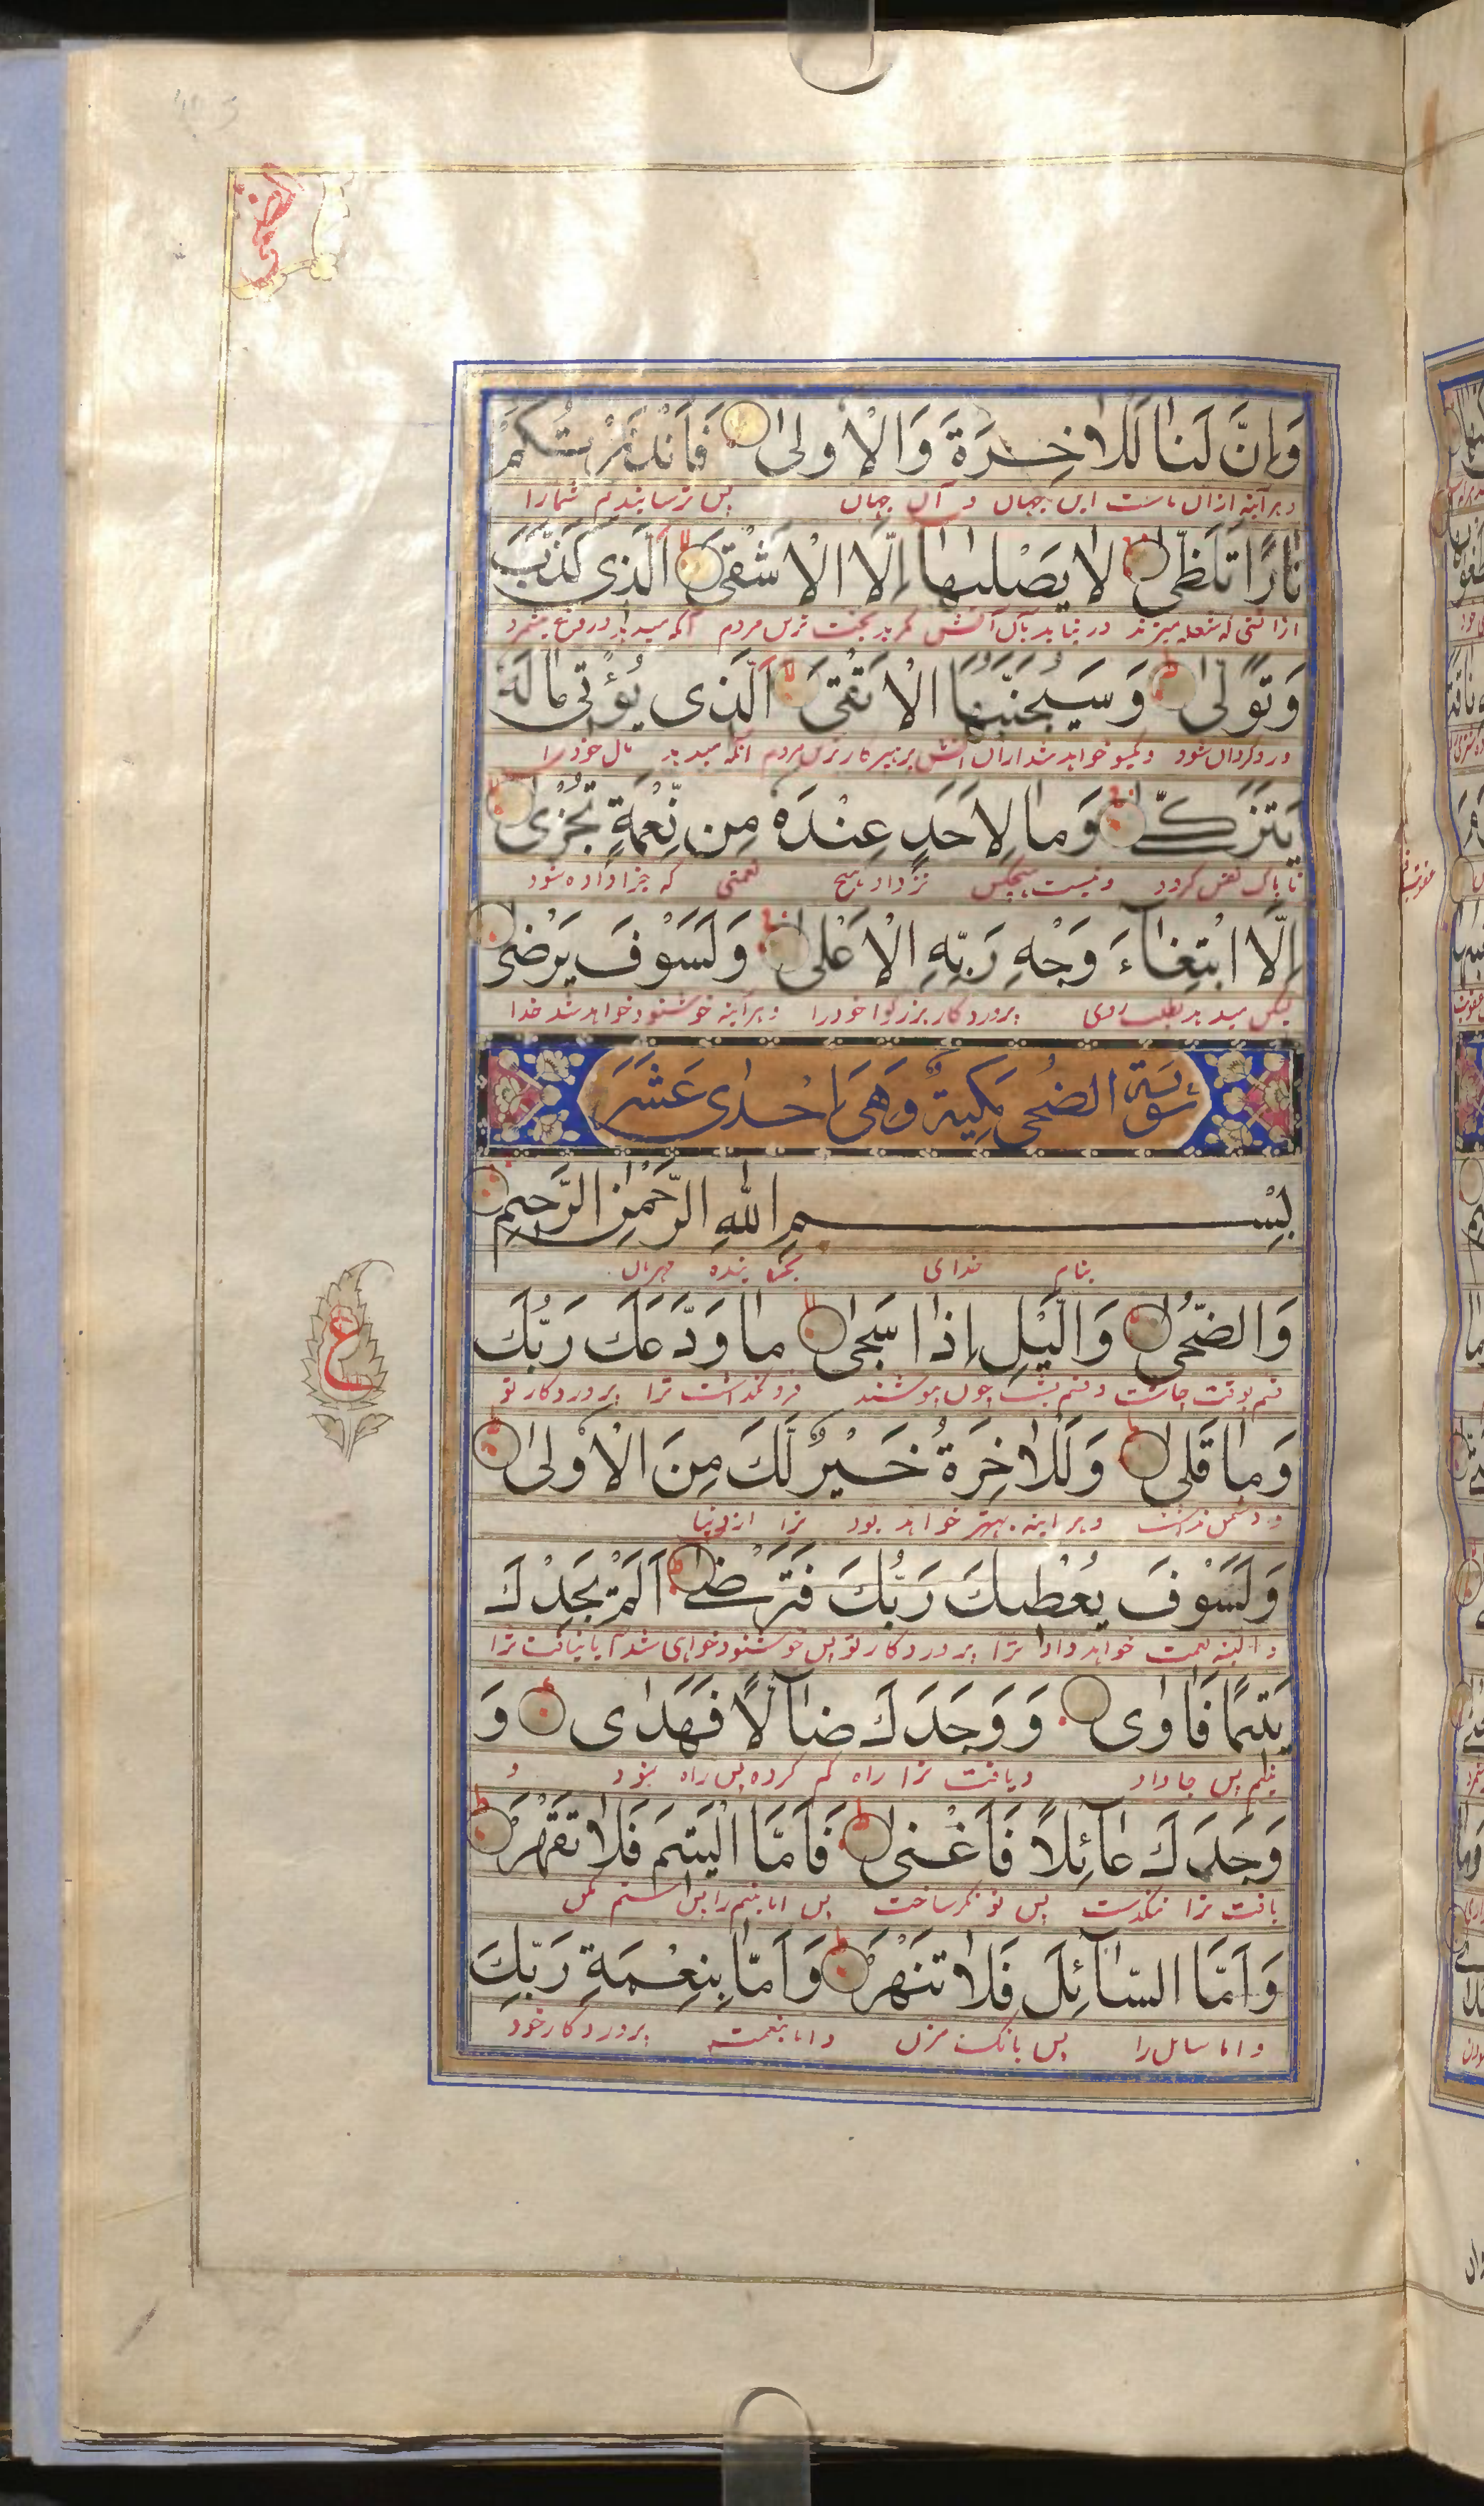 الضحى
وَاِنَّ لَنَا لَلْاٰخِرَةَ وَالْاُولٰى فَاَنْذَرْتُكُمْ
و هر آینه از آن ماست این جهان و آن جهان پس ترسانیدم شما را
نَارًا تَلَظّٰى لَا يَصْلٰىهَا اِلَّا الْاَشْقَى الَّذِى كَذَّبَ
از آتشی که شعله میزند در نیاید بآن آتش مگر بدبخت ترین مردم آنکه
وَتَوَلّٰى وَسَيُجَنَّبُهَا الْاَتْقَى الَّذِى يُؤْتِى مَالَهُ
و رو گردان شود و یکسو خواهد شد از آن آتش پرهیزکار ترین مردم آنکه میدهد مال خود را
يَتَزَكّٰى وَمَا لِاَحَدٍ عِنْدَهُ مِن نِّعْمَةٍ تُجْزٰى
تا پاک نفس گردد و نیست هیچکس نزد او هیچ نعمتی که جزا داده شود
اِلَّا ابْتِغَاۤءَ وَجْهِ رَبِّهِ الْاَعْلٰى وَلَسَوْفَ يَرْضٰى
لیکن میدهد بطلب روی پروردگار بزرگوار خود را و هر آینه خوشنود خواهد شد خدا
سُورَةُ الضُّحى مَكِيَةٌ وَهِىَ اِحْدٰى عَشَرَ
بِسْمِ اللهِ الرَّحْمٰنِ الرَّحِيمِ
بنام خدای بخشاینده مهربان
وَالضُّحٰى وَالَّيْلِ اِذَا سَجٰى مَا وَدَّعَكَ رَبُّكَ
قسم بوقت چاشت و قسم بشب چون بپوشند فرو نگذاشت ترا پروردگار تو
ع
وَمَا قَلٰى وَلَلْاٰخِرَةُ خَيْرٌ لَّكَ مِنَ الْاُولٰى
و دشمن نداشت و هر اینه بهتر خواهد بود ترا از دنیا
وَلَسَوْفَ يُعْطِيكَ رَبُّكَ فَتَرْضٰى اَلَمْ يَجِدْكَ
و البته نعمت خواهد داد ترا پروردگار تو پس خوشنود خواهی شد آیا نیافت ترا
يَتِيمًا فَاٰوٰى وَوَجَدَكَ ضَاۤلًّا فَهَدٰى وَ
یتیم پس جا داد و یافت ترا راه گم کرده پس راه نمود و
وَجَدَكَ عَاۤئِلًا فَاَغْنٰى فَاَمَّا الْيَتِيمَ فَلَا تَقْهَرْ
یافت ترا تنگدست پس تونگر ساخت پس اما یتیم را پس ستم مکن
وَاَمَّا السَّاۤئِلَ فَلَا تَنْهَرْ وَاَمَّا بِنِعْمَةِ رَبِّكَ
و اما سایل را پس بانگ مزن و اما بنعمت پروردگار خود